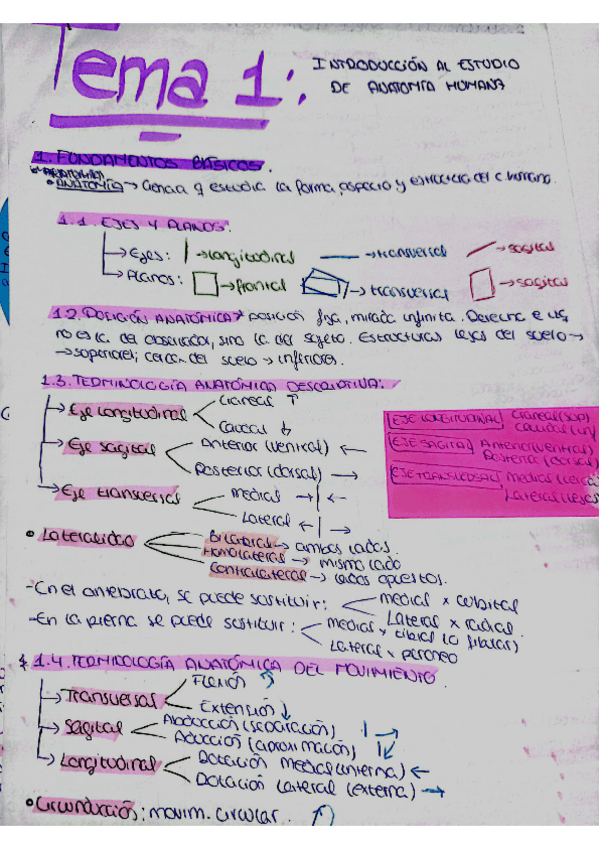 Tema 1:
INTRODUCCIÓN AL ESTUDIO
DE ANATOMÍA HUMANA
1. FUNDAMENTOS BÁSICOS.
ANATOMÍA → Ciencia q estudia la forma, aspecto y estructura del c. humano.
1.1. EJES Y PLANOS.
→ Ejes: → longitudinal → transversal → sagital
→ Planos: → frontal → transversal → sagital
1.2. POSICIÓN ANATÓMICA → posición fija, mirada infinita. Derecha e izq
no es la del observador, sino la del sujeto. Estructuras lejos del suelo →
→ superiores; cerca del suelo → inferiores.
1.3. TERMINOLOGÍA ANATÓMICA DESCRIPTIVA:
→ Eje longitudinal Craneal ↑
Caudal ↓
→ Eje sagital Anterior (ventral) ←
Posterior (dorsal) →
→ Eje transversal medial →|←
Lateral ←|→
EJE LONGITUDINAL Craneal (sup)
Caudal (inf)
EJE SAGITAL Anterior (ventral)
Posterior (dorsal)
EJE TRANSVERSAL Medial (cerca)
Lateral (lejos)
• Lateralidad Bilateral → ambos lados.
Homolateral → mismo lado
Contralateral → lados opuestos.
- En el antebrazo, se puede sustituir: medial x cubital
Lateral x radial
- En la pierna se puede sustituir: medial x tibial (o fibular)
Lateral x peroneo
1.4. TERMINOLOGÍA ANATÓMICA DEL MOVIMIENTO.
→ Transversal Flexión
Extensión
→ Sagital Abducción (separación)
Aducción (aproximación)
→ Longitudinal Rotación medial (interna) ←
Rotación lateral (externa) →
• Circunducción: movim. circular.